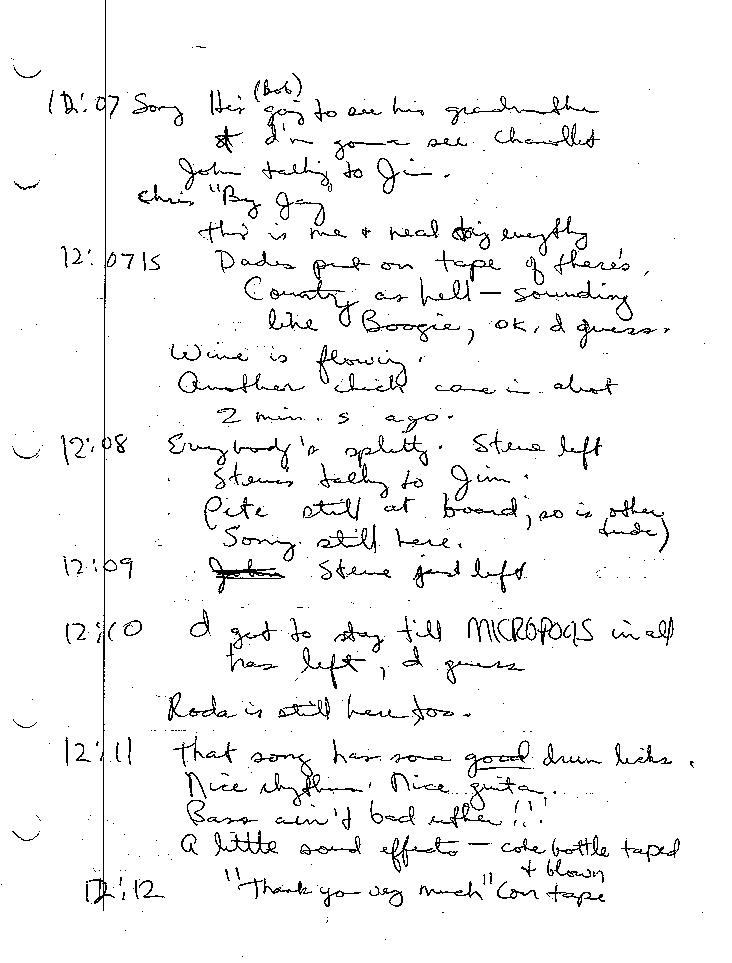 (Bob)
12:07 Song He's going to see his grandmother
I'm gonna see
John talking to Jim.
Chris "By Jay
this is me + neal doing everythg
12:0715 Dades put on tape of theres,
Country as hell – sounding
like Boogie, ok, I guess.
Wine is flowing.
Another chick came in about
2 min.s ago.
12:08 Everybody's splitty. Steve left
Steve's talkg to Jim.
Pete still at board, so is other
dude)
Sony still here.
12:09 Steve just left
12:10 I got to stay till MICROPOLIS in all
has left, I guess
Roda is still here too.
12:11 That song has some good drum licks.
Nice rhythm. Nice guitar.
Bass ain't bad either!!!
A little sound effects – coke bottle taped
+ blown
12:12 "Thank you very much" (on tape